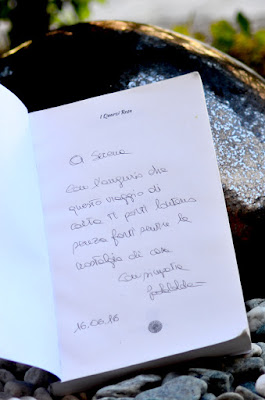 A Serena
con l'augurio che
questo viaggio di
carta ti porti lontano
senza farti sentire la
nostalgia di casa
Con simpatia
16.06.16